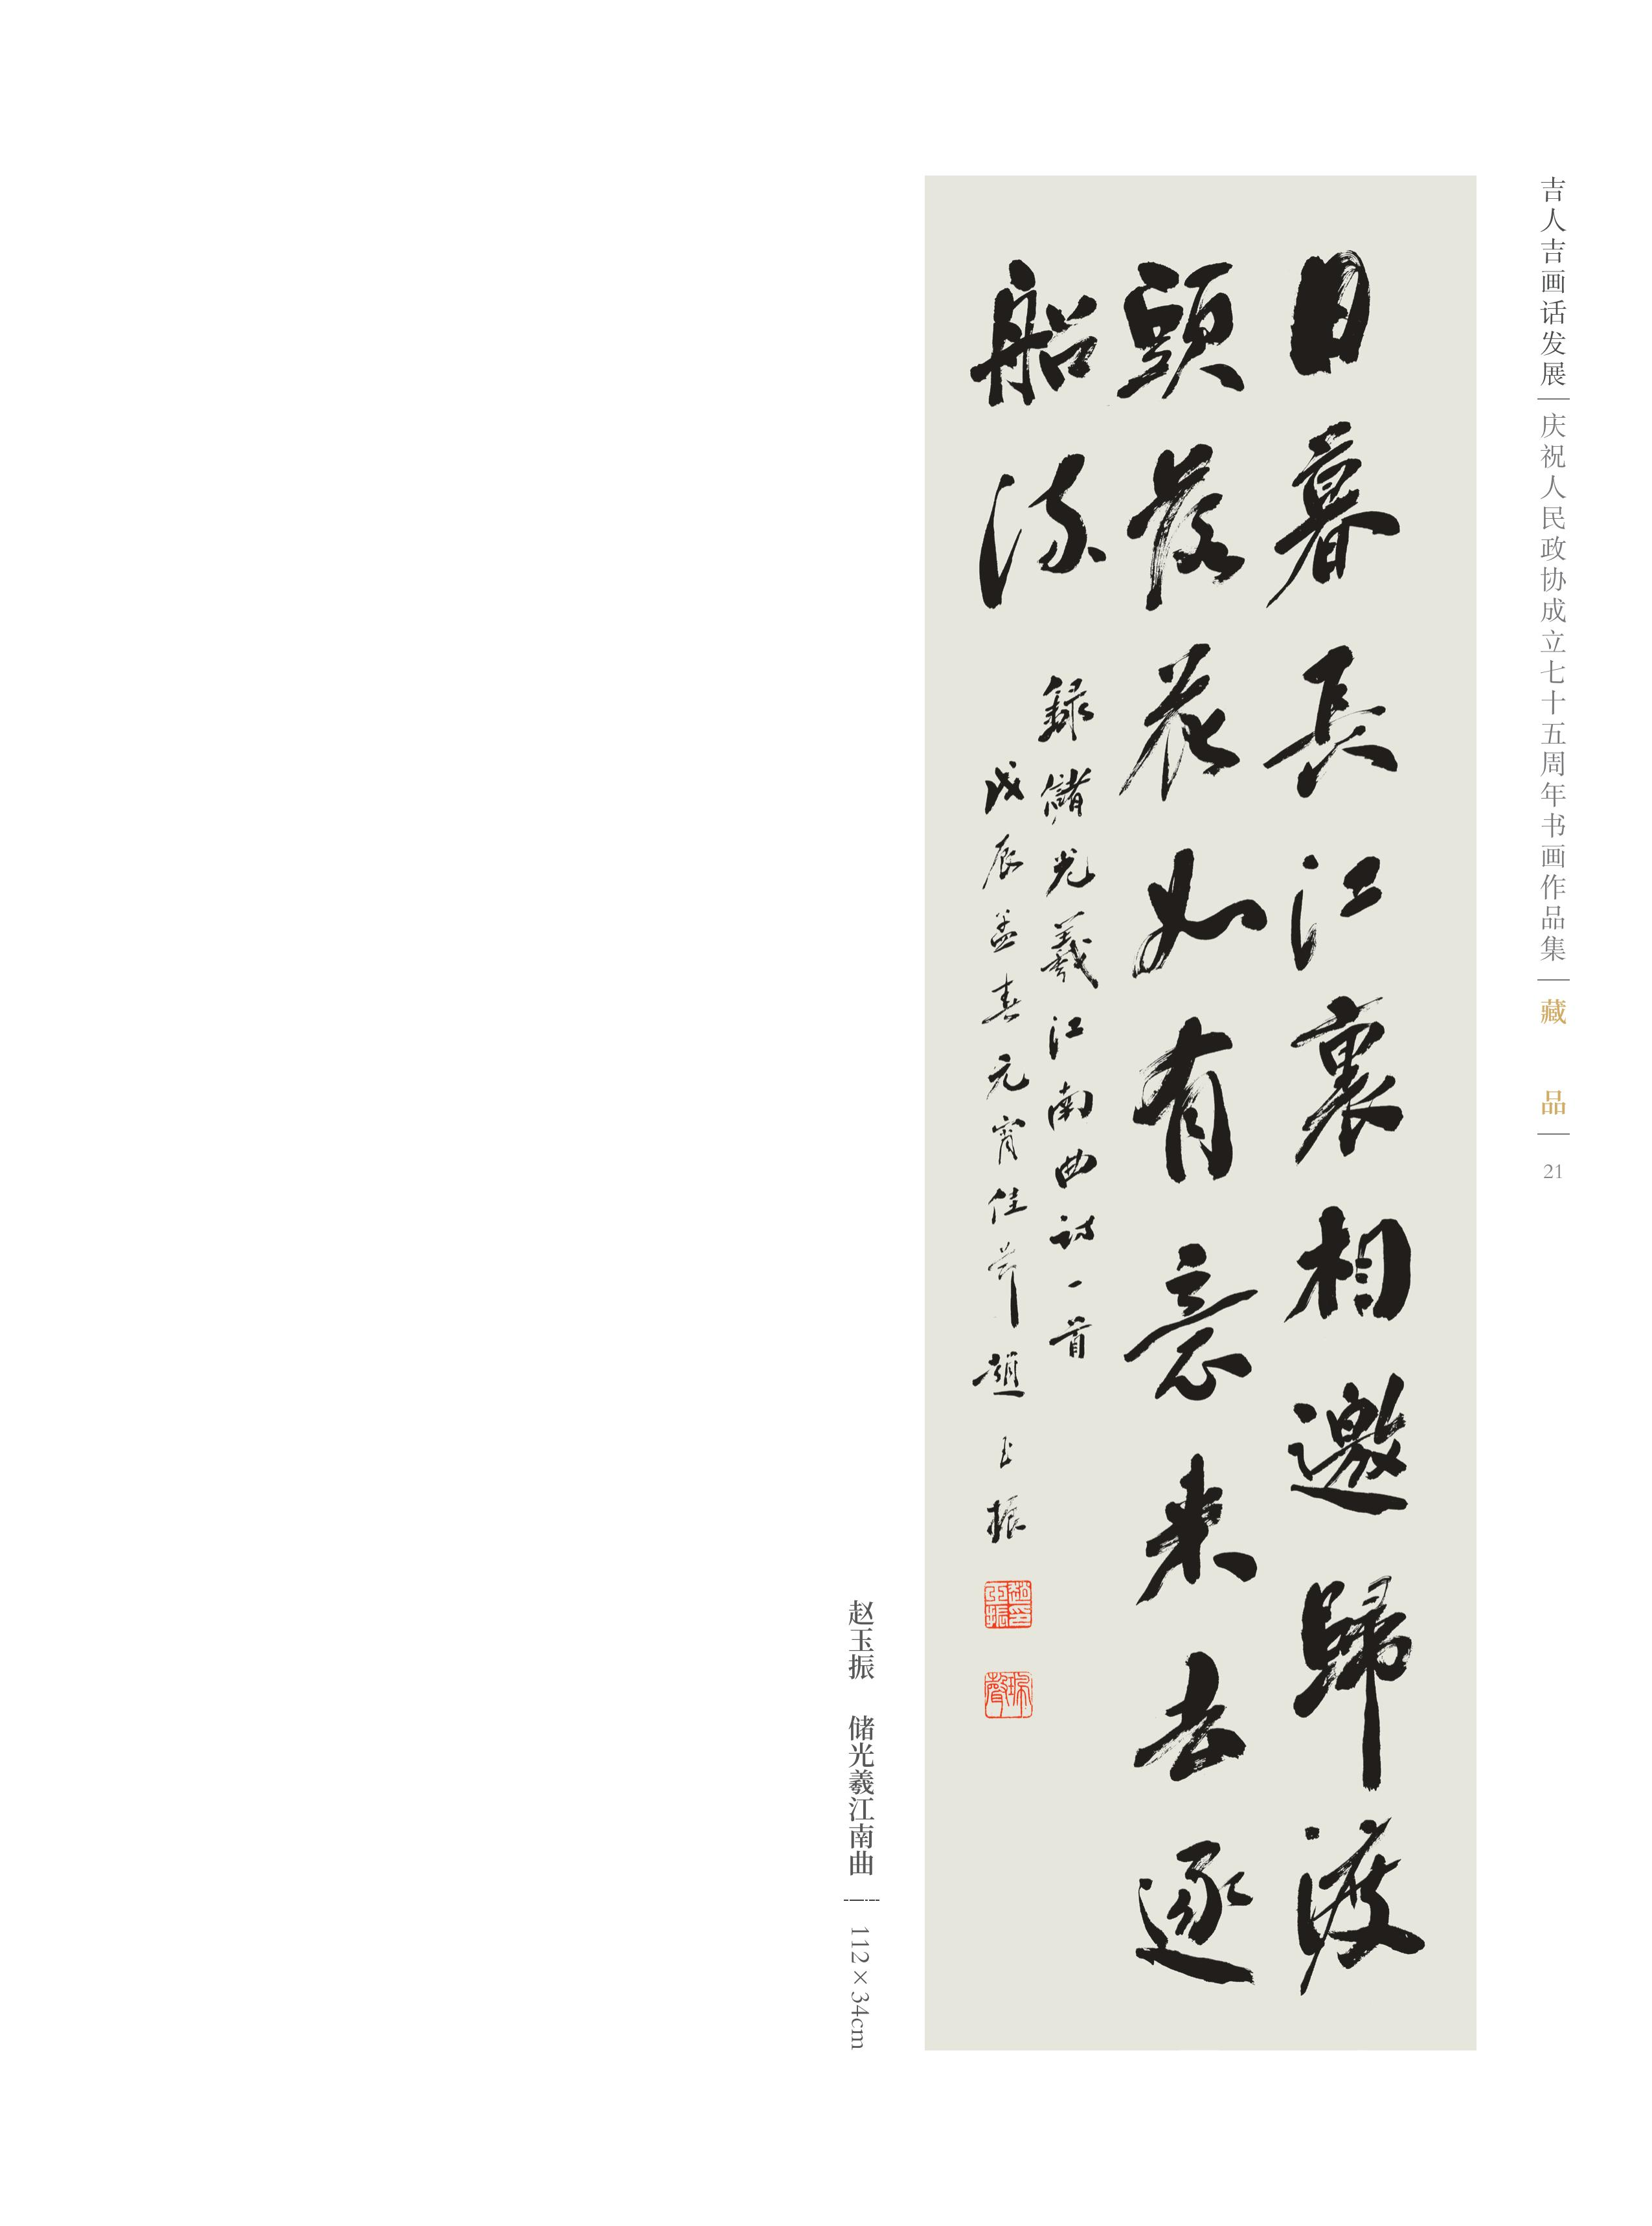 吉人吉画话发展
庆祝人民政协成立七十五周年书画作品集
藏品
21
日暮長江裏相邀歸渡
頭落花如有意來去逐
船流
録儲光羲江南曲詩一首
戊辰孟春元宵佳節趙玉振
赵玉振 储光羲江南曲
112×34cm